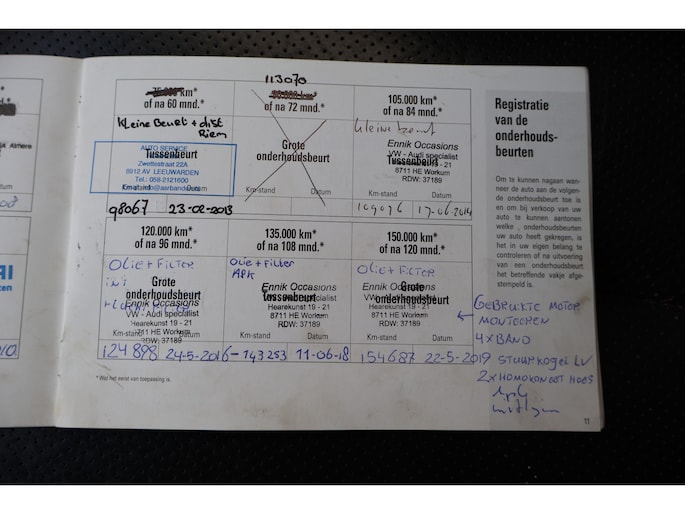 113070
75.000 km*
of na 60 mnd.*
90.000 km*
of na 72 mnd.*
105.000 km*
of na 84 mnd.*
Kleine Beurt + dist
Riem
AUTO SERVICE
Tussenbeurt
Zwettestraat 22A
8912 AV LEEUWARDEN
Tel.: 058-2121600
Km-stand
Datum
98067
23-02-2013
Grote
onderhoudsbeurt
Km-stand
Datum
kleine beurt
Ennik Occasions
VW - Audi specialist
Tussenbeurt
8711 HE Workum
RDW: 37189
Km-stand
Datum
109076
17-06-2014
120.000 km*
of na 96 mnd.*
135.000 km*
of na 108 mnd.*
150.000 km*
of na 120 mnd.*
OLIE + FILTER
Grote
onderhoudsbeurt
Ennik Occasions
VW - Audi specialist
Hearekunst 19 - 21
8711 HE Workum
RDW: 37189
124898
24-5-2016
Olie + Filter
APK
Ennik Occasions
Tussenbeurt
Hearekunst 19 - 21
8711 HE Workum
RDW: 37189
Km-stand
Datum
143253
11-06-18
OLIE + FILTER
Grote
onderhoudsbeurt
Ennik Occasions
VW - Audi specialist
Hearekunst 19 - 21
8711 HE Workum
RDW: 37189
Km-stand
Datum
154687
22-5-2019
* Wat het eerst van toepassing is.
Registratie
van de
onderhouds-
beurten
Om te kunnen nagaan wanneer
de auto aan de volgen-
de onderhoudsbeurt toe is
en om bij verkoop van uw
auto te kunnen aantonen
welke , onderhoudsbeurten
uw auto heeft gekregen, is
het in uw eigen belang te
controleren of na uitvoering
van een onderhoudsbeurt
het betreffende vakje afge-
stempeld is.
GEBRUIKTE MOTOR
MONTEREN
4 x BAND
STUURKOGEL LV
2x HOMOKINEET HOES
11